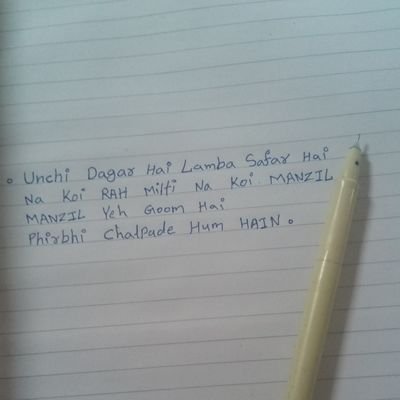 Unchi Dagar Hai Lamba Safar Hai
Na Koi RAH Milti Na Koi MANZIL
MANZIL Yeh Goom Hai
Phirbhi Chalpade Hum HAIN.